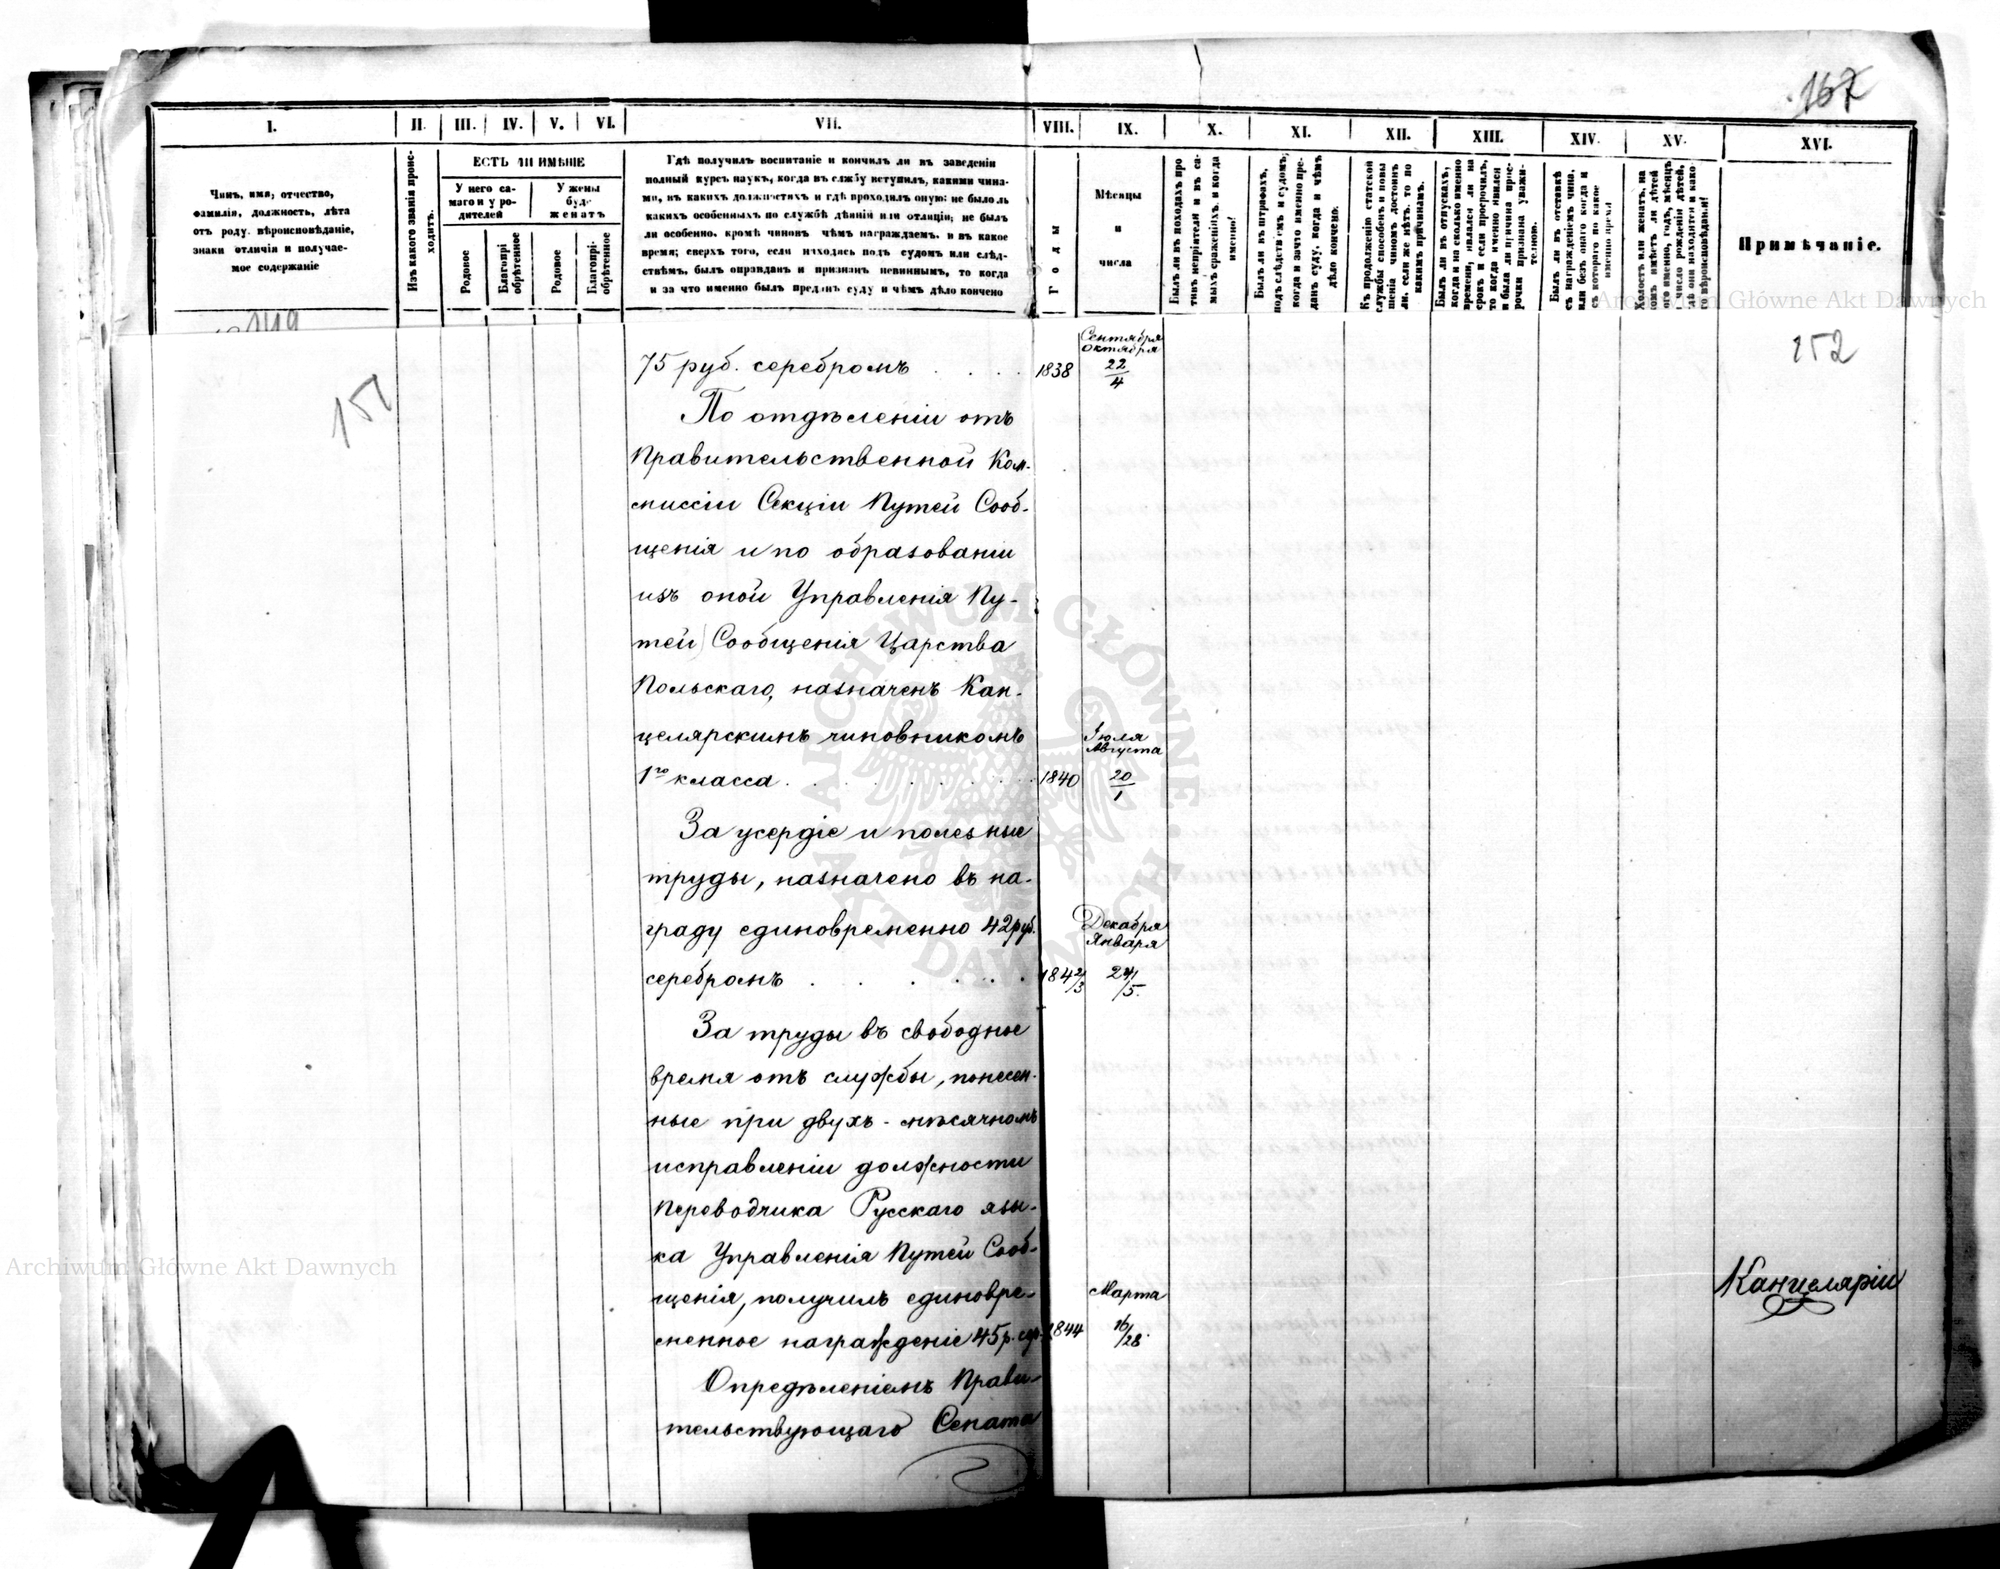 167
I.
II.
III.
IV.
V.
VI.
VII.
VIII.
IX.
X.
XI.
XII.
XIII.
XIV.
XV.
XVI.
Чинъ, имя, отчество,
фамилія, должность, лѣта
отъ роду, вѣроисповѣданіе,
знаки отличія и получае-
мое содержаніе
Изъ какого званія проис-
ходитъ.
ЕСТЬ ЛИ ИМѢНІЕ
У него са-
маго и у ро-
дителей
У жены
буде
женатъ
Родовое
Благопрі-
обрѣтенное
Родовое
Благопрі-
обрѣтенное
Гдѣ получилъ воспитаніе и кончилъ ли въ заведеніи
полный курсъ наукъ, когда въ службу вступилъ, какими чина-
ми, въ какихъ должностяхъ и гдѣ проходилъ оную: не было ль
какихъ особенныхъ по службѣ дѣяній или отличій; не былъ
ли особенно, кромѣ чиновъ чѣмъ награждаемъ, и въ какое
время; сверхъ того, если находясь подъ судомъ или слѣд-
ствіемъ, былъ оправданъ и признанъ невиннымъ, то когда
и за что именно былъ преданъ суду и чѣмъ дѣло кончено
Годы
Мѣсяцы
и
числа
Былъ ли въ походахъ про
тивъ непріятеля и въ са-
мыхъ сраженіяхъ, и когда
именно?
Былъ ли въ штрафахъ,
подъ слѣдствіемъ и судомъ;
когда и за что именно пре-
данъ суду, когда и чѣмъ
дѣло кончено.
Къ продолженію статской
службы способенъ и повы
шенія чиномъ достоинъ
ли, если же нѣтъ, то по
какимъ причинамъ.
Былъ ли въ отпускахъ,
когда и на сколько именно
времени, явился ли на
срокъ и если просрочилъ,
то когда именно явился
и была ли причина прос-
рочки признана уважи-
телною.
Былъ ли въ отставкѣ
съ награжденіемъ чина,
или безъ онаго когда и
съ котораго по какое
именно время
Холостъ или женатъ, на
комъ имѣетъ ли дѣтей
кого именно, годъ, мѣсяцъ
и число рожденія дѣтей,
гдѣ они находятся и како-
го вѣроисповѣданія?
Примѣчаніе.
Archiwum Główne Akt Dawnych
149
151
152
75 руб. серебромъ . . . .
1838
Сентября
Октября
22
4
По отдѣленіи отъ
Правительственной Ком-
миссіи Секціи Путей Сооб-
щенія и по образованіи
изъ оной Управленія Пу-
тей Сообщенія Царства
Польскаго, назначенъ Кан-
целярскимъ чиновникомъ
1го класса . . . . . .
1840
Іюля
Августа
20
1
За усердіе и полезные
труды, назначено въ на-
граду единовременно 42 руб.
серебромъ . . . . .
1842/3
Декабря
Января
24/5.
За труды въ свободное
время отъ службы, понесен-
ные при двухъ-мѣсячномъ
исправленіи должности
Переводчика Русскаго язы-
ка Управленія Путей Сооб-
щенія, получилъ единовре-
менное награжденіе 45 р. сер.
1844
Марта
16/28.
Опредѣленіемъ Прави-
тельствующаго Сената
Канцеляріи
ARCHIWUM GŁÓWNE AKT DAWNYCH
Archiwum Główne Akt Dawnych